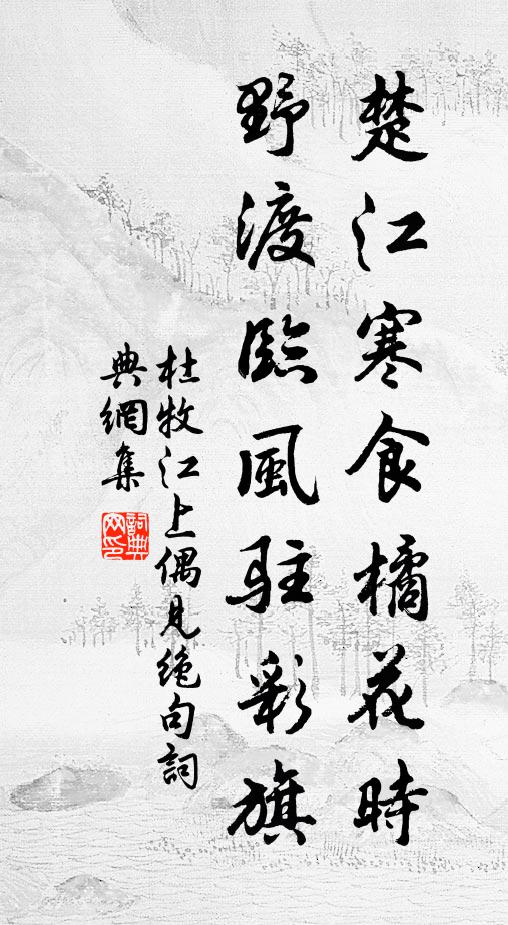 楚江寒食橘花時
野渡臨風駐彩旗
杜牧江上偶見絶句詞
典網集
詞典
网印